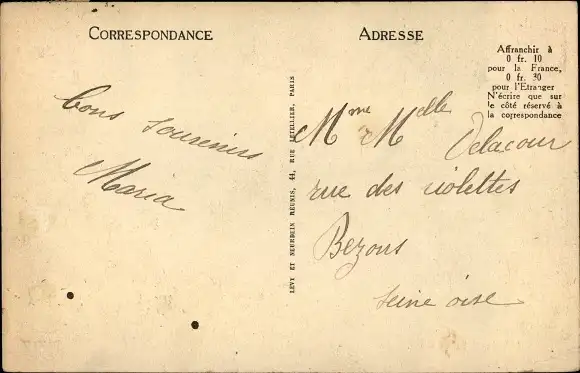 CORRESPONDANCE
Bons souvenirs
Maria
LÉVY ET NEURDEIN RÉUNIS, 44, RUE LETELLIER, PARIS
ADRESSE
Affranchir à
0 fr. 10
pour la France,
0 fr. 30
pour l'Etranger
N'écrire que sur
le côté réservé à
la correspondance
Mme Melle Delacour
rue des violettes
Bezons
Seine oise